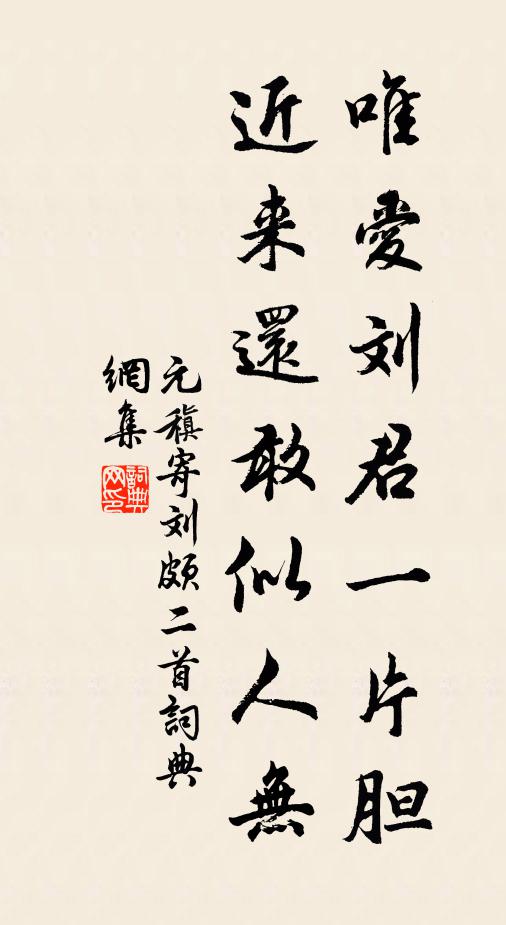 唯愛刘君一片胆
近来還敢似人無
元稹寄刘頗二首詞典
網集
詞典
网印